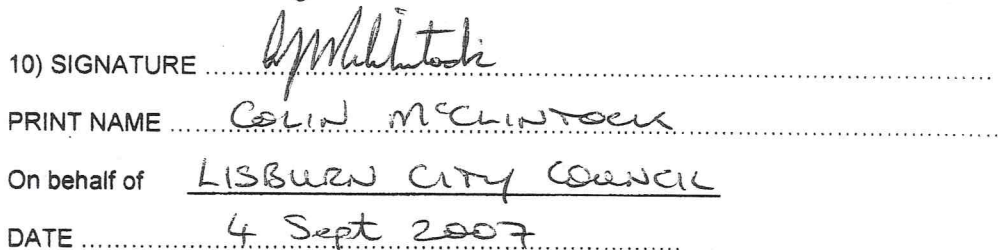 10) SIGNATURE
PRINT NAME COLIN McCLINTOCK
On behalf of LISBURN CITY COUNCIL
DATE 4 Sept 2007